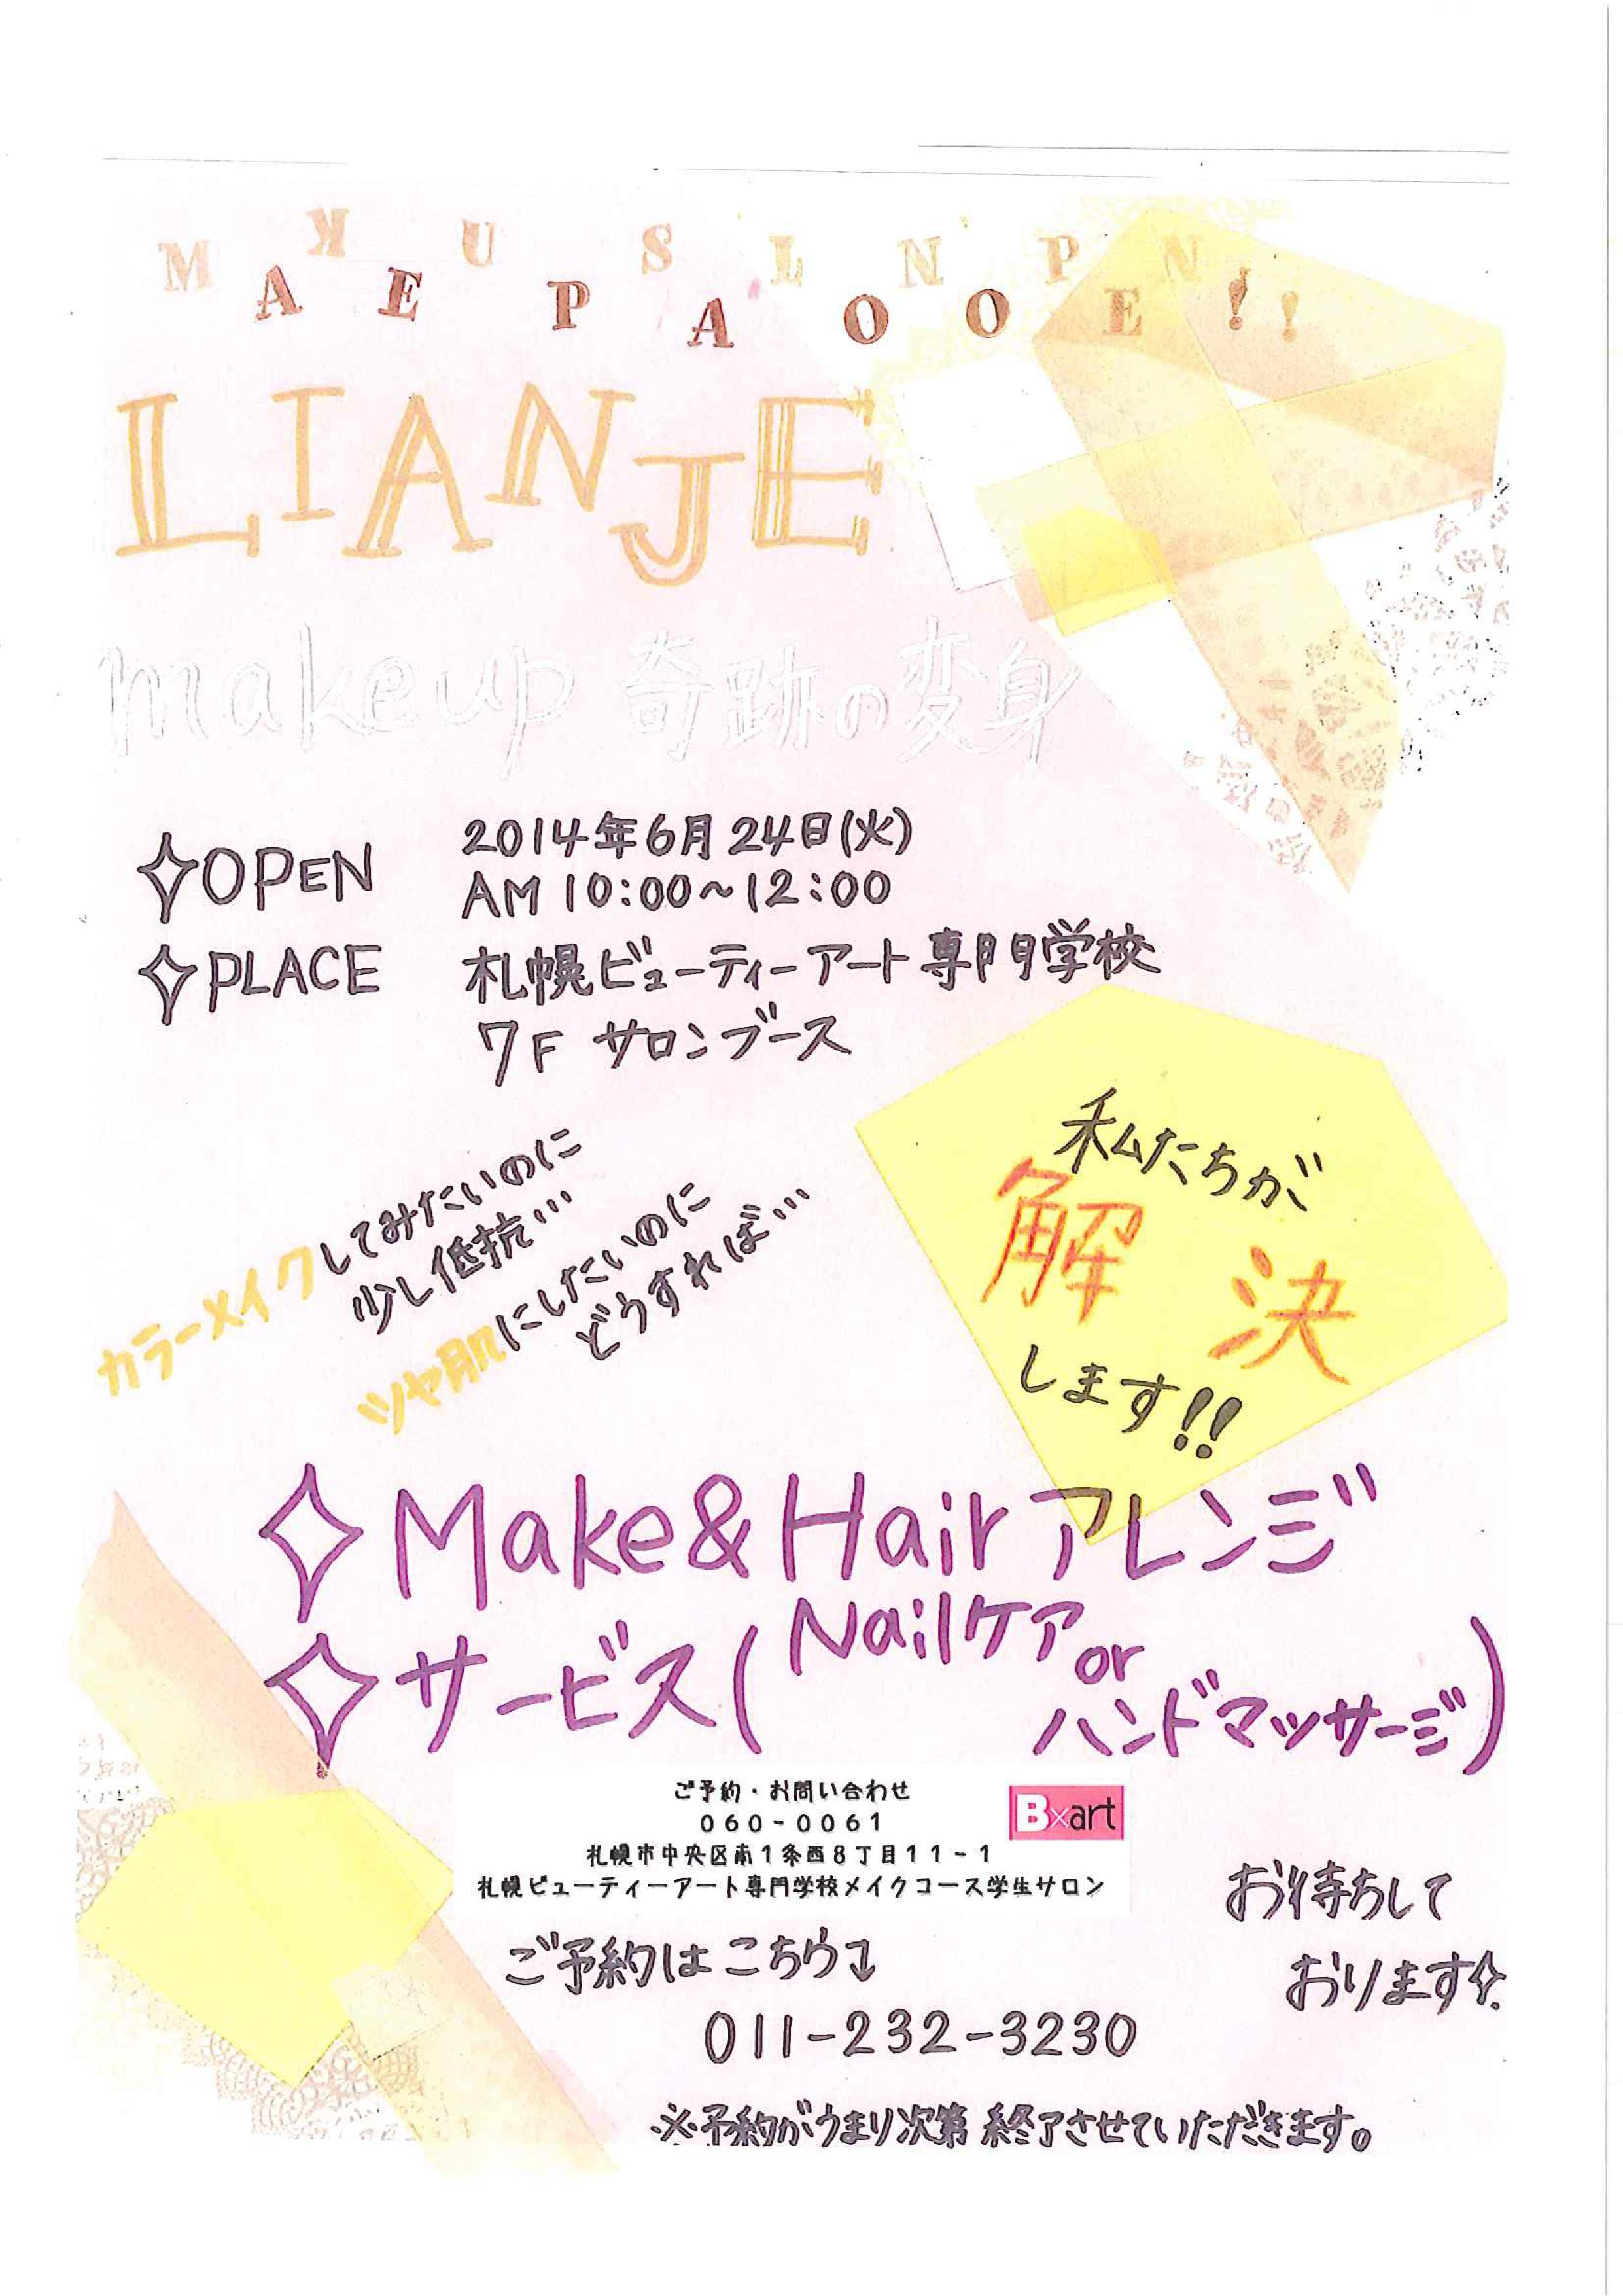 MAKEUP SALON OPEN!!
LIANJE
makeup 奇跡の変身
✧OPEN 2014年6月24日(火)
AM10:00~12:00
✧PLACE 札幌ビューティーアート専門学校
7F サロンブース
カラーメイクしてみたいのに
少し低抗…
ツヤ肌にしたいのに
どうすれば…
私たちが
解決
します!!
✧Make&Hairアレンジ
✧サービス(Nailケア
or
ハンドマッサージ)
ご予約・お問い合わせ
060-0061
札幌市中央区南1条西8丁目11-1
札幌ビューティーアート専門学校メイクコース学生サロン
B×art
ご予約はこちら↴
011-232-3230
お待ちして
おります✧
※予約がうまり次第 終了させていただきます。